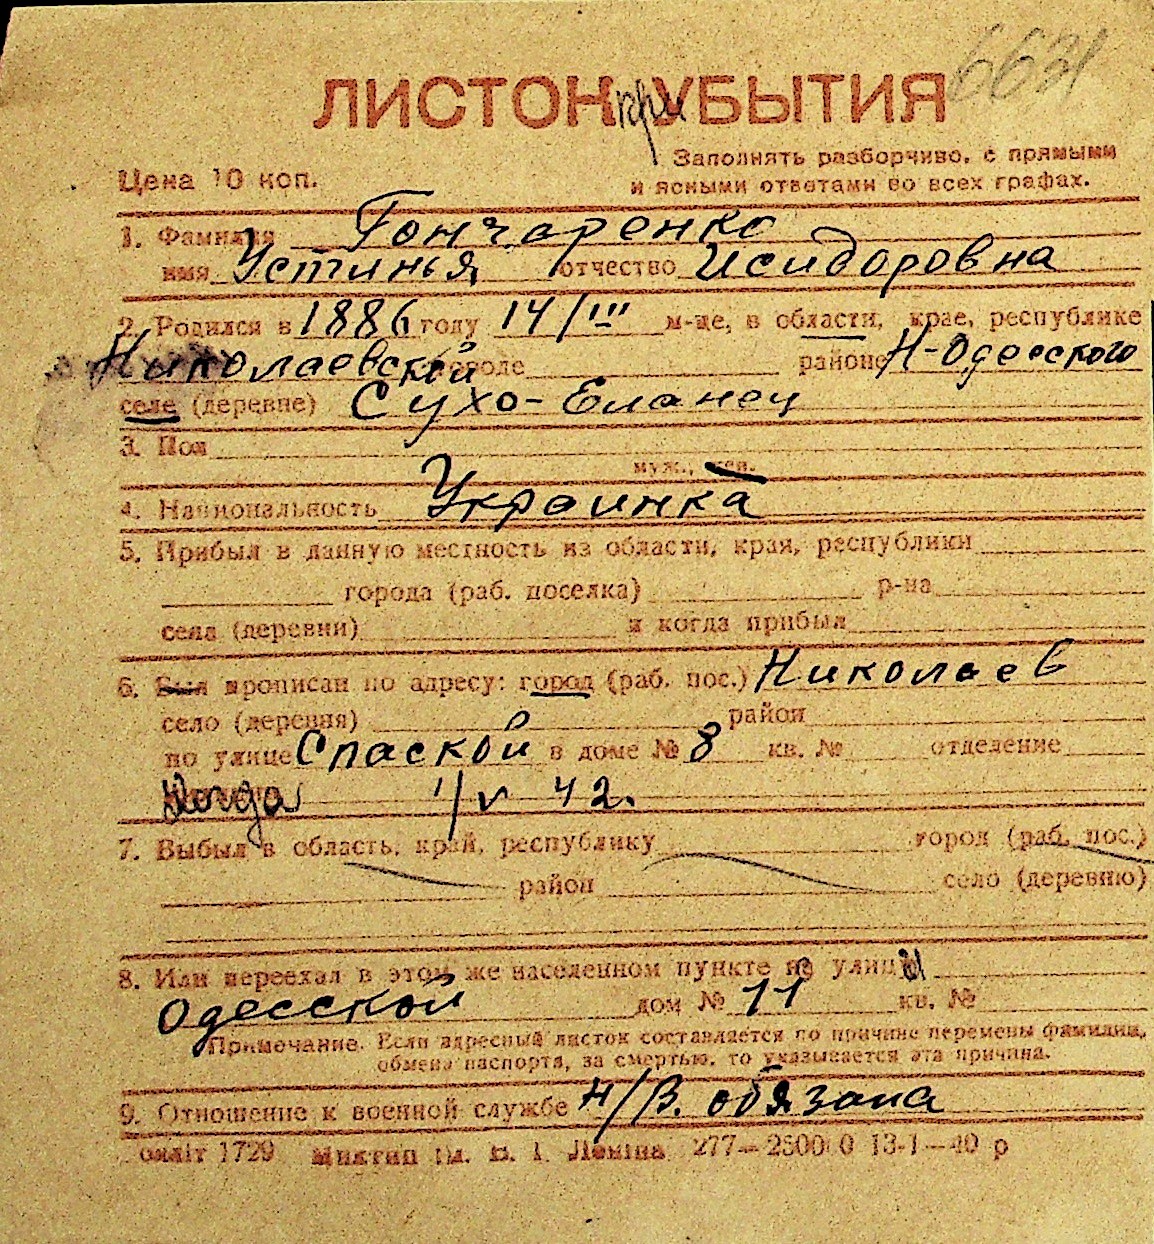 6631
ЛИСТОК при УБЫТИЯ
Заполнять разборчиво, с прямыми
Цена 10 коп.
и ясными ответами во всех графах.
1. Фамилия Гончаренко
имя Устинья отчество Исидоровна
2. Родился в 1886 году 14/III м-це, в области, крае, республике
Николаевской городе районе Н-Одесского
селе (деревне) Сухо-Еланец
3. Пол
муж., жен.
4. Национальность Украинка
5. Прибыл в данную местность из области, края, республики
города (раб. поселка) р-на
села (деревни) и когда прибыл
6. Был прописан по адресу: город (раб. пос.) Николаев
село (деревня) район
по улице Спаской в доме № 8 кв. № отделение
Когда 1/V 42.
7. Выбыл в область, край, республику город (раб. пос.)
район село (деревню)
8. Или переехал в этом же населенном пункте на улицы
Одесской дом № 11 кв. №
Примечание. Если адресный листок составляется по причине перемены фамилии,
обмена паспорта, за смертью, то указывается эта причина.
9. Отношение к военной службе Н/В. обязана
1729 им. В. І. Леніна 277—25000 13-1—40 р